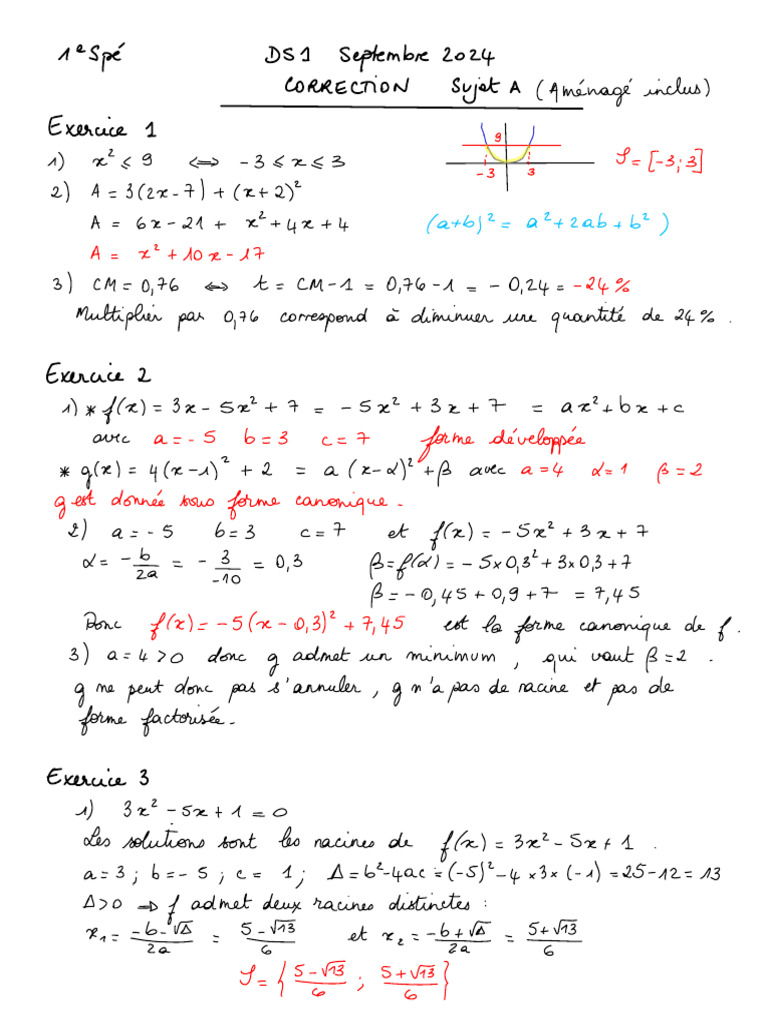 1e Spé DS1 Septembre 2024
CORRECTION Sujet A (Aménagé inclus)
Exercice 1
1) x² ⩽ 9 ⟺ -3 ⩽ x ⩽ 3 9 -3 3 S = [-3;3]
2) A = 3(2x-7) + (x+2)²
A = 6x - 21 + x² + 4x + 4 (a+b)² = a² + 2ab + b²)
A = x² + 10x - 17
3) CM = 0,76 ⟺ t = CM - 1 = 0,76 - 1 = - 0,24 = -24 %
Multiplier par 0,76 correspond à diminuer une quantité de 24 %.
Exercice 2
1) * f(x) = 3x - 5x² + 7 = - 5x² + 3x + 7 = ax² + bx + c
avec a = - 5 b = 3 c = 7 forme développée
* g(x) = 4(x-1)² + 2 = a (x-α)² + β avec a = 4 α = 1 β = 2
g est donnée sous forme canonique.
2) a = - 5 b = 3 c = 7 et f(x) = - 5x² + 3x + 7
α = -b/2a = - 3/-10 = 0,3 β = f(α) = - 5 × 0,3² + 3 × 0,3 + 7
β = - 0,45 + 0,9 + 7 = 7,45
Donc f(x) = -5(x - 0,3)² + 7,45 est la forme canonique de f.
3) a = 4 > 0 donc g admet un minimum, qui vaut β = 2.
g ne peut donc pas s'annuler, g n'a pas de racine et pas de
forme factorisée.
Exercice 3
1) 3x² - 5x + 1 = 0
Les solutions sont les racines de f(x) = 3x² - 5x + 1.
a = 3 ; b = - 5 ; c = 1 ; Δ = b² - 4ac = (-5)² - 4 × 3 × (-1) = 25 - 12 = 13
Δ > 0 ⟹ f admet deux racines distinctes :
x₁ = -b-√Δ/2a = 5-√13/6 et x₂ = -b+√Δ/2a = 5+√13/6
S = { 5-√13/6 ; 5+√13/6 }